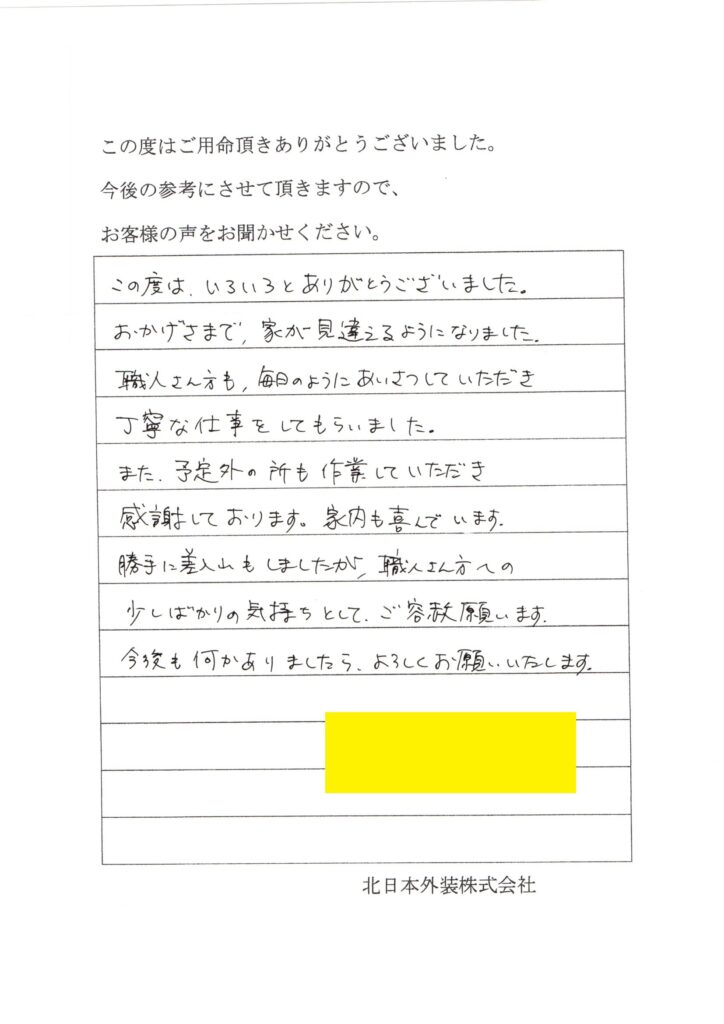 この度はご用命頂きありがとうございました。
今後の参考にさせて頂きますので、
お客様の声をお聞かせください。
この度は、いろいろとありがとうございました。
おかげさまで、家が見違えるようになりました。
職人さん方も、毎日のようにあいさつしていただき
丁寧な仕事をしてもらいました。
また、予定外の所も作業していただき
感謝しております。家内も喜んでいます。
勝手に差入れもしましたが、職人さん方への
少しばかりの気持ちとして、ご容赦願います。
今後も何かありましたら、よろしくお願いいたします。
北日本外装株式会社